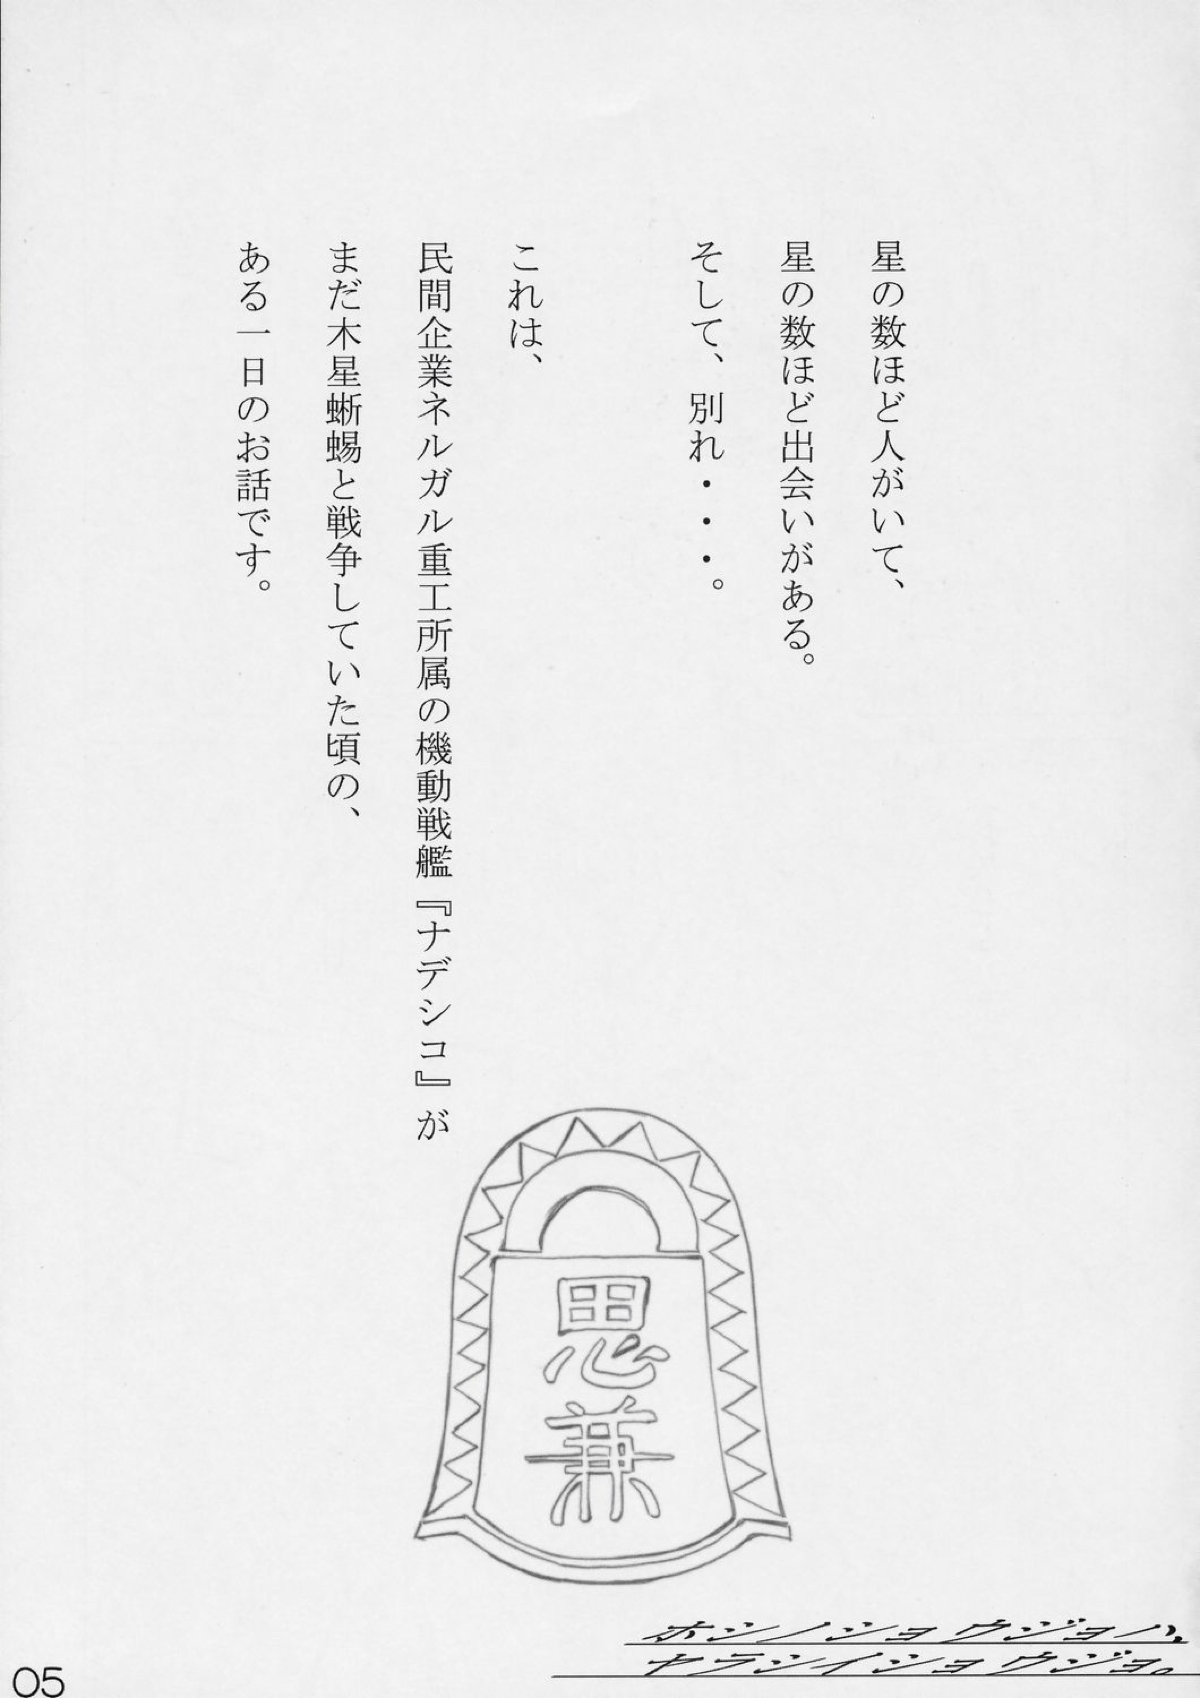 星の数ほど人がいて、
星の数ほど出会いがある。
そして、別れ・・・。
これは、
民間企業ネルガル重工所属の機動戦艦『ナデシコ』が
まだ木星蜥蜴と戦争していた頃の、
ある一日のお話です。
思兼
ホシノショウジョハ、
ヤラシイショウジョ。
05